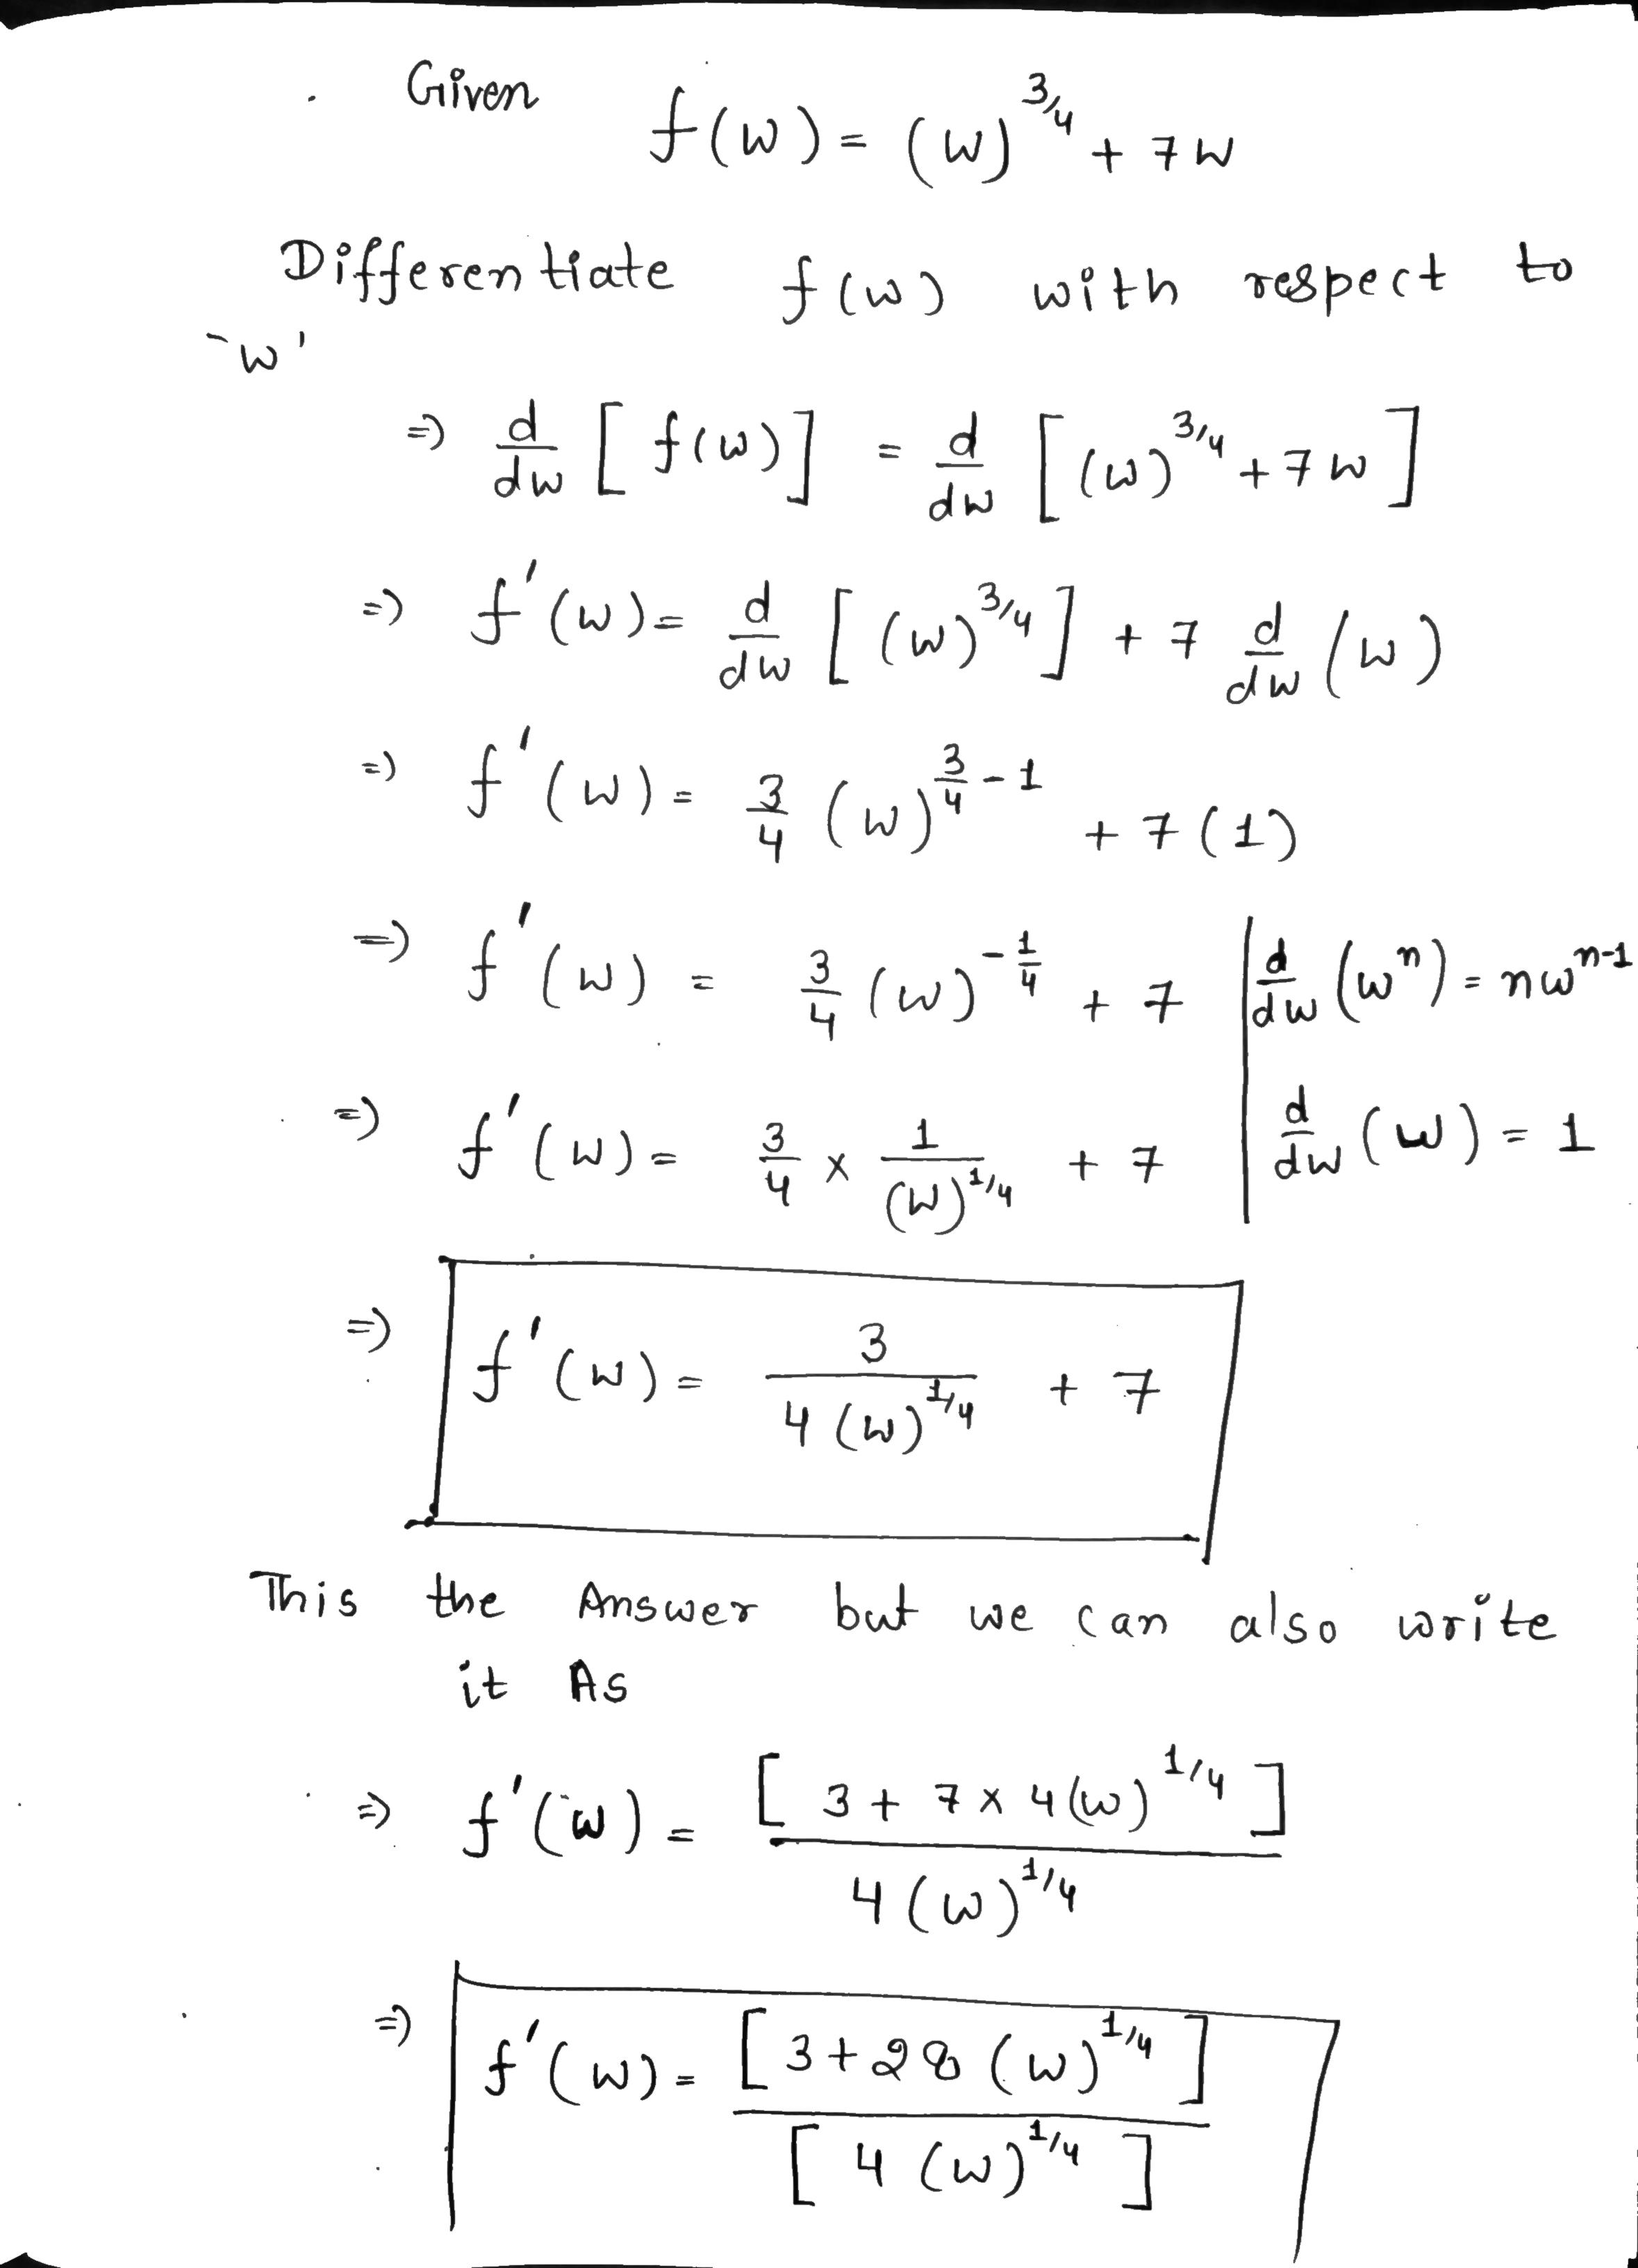 Given f(w) = (w)^3/4 + 7w
Differentiate f(w) with respect to
'w'
=> d/dw [f(w)] = d/dw [(w)^3/4 + 7w]
=> f'(w) = d/dw [(w)^3/4] + 7 d/dw (w)
=> f'(w) = 3/4 (w)^(3/4 - 1) + 7(1)
=> f'(w) = 3/4 (w)^(-1/4) + 7 | d/dw (w^n) = nw^(n-1)
=> f'(w) = 3/4 × 1/(w)^1/4 + 7 | d/dw (w) = 1
=> f'(w) = 3/(4(w)^1/4) + 7
This the Answer but we can also write
it As
=> f'(w) = [3 + 7 × 4(w)^1/4] / 4(w)^1/4
=> f'(w) = [3 + 28(w)^1/4] / [4(w)^1/4]